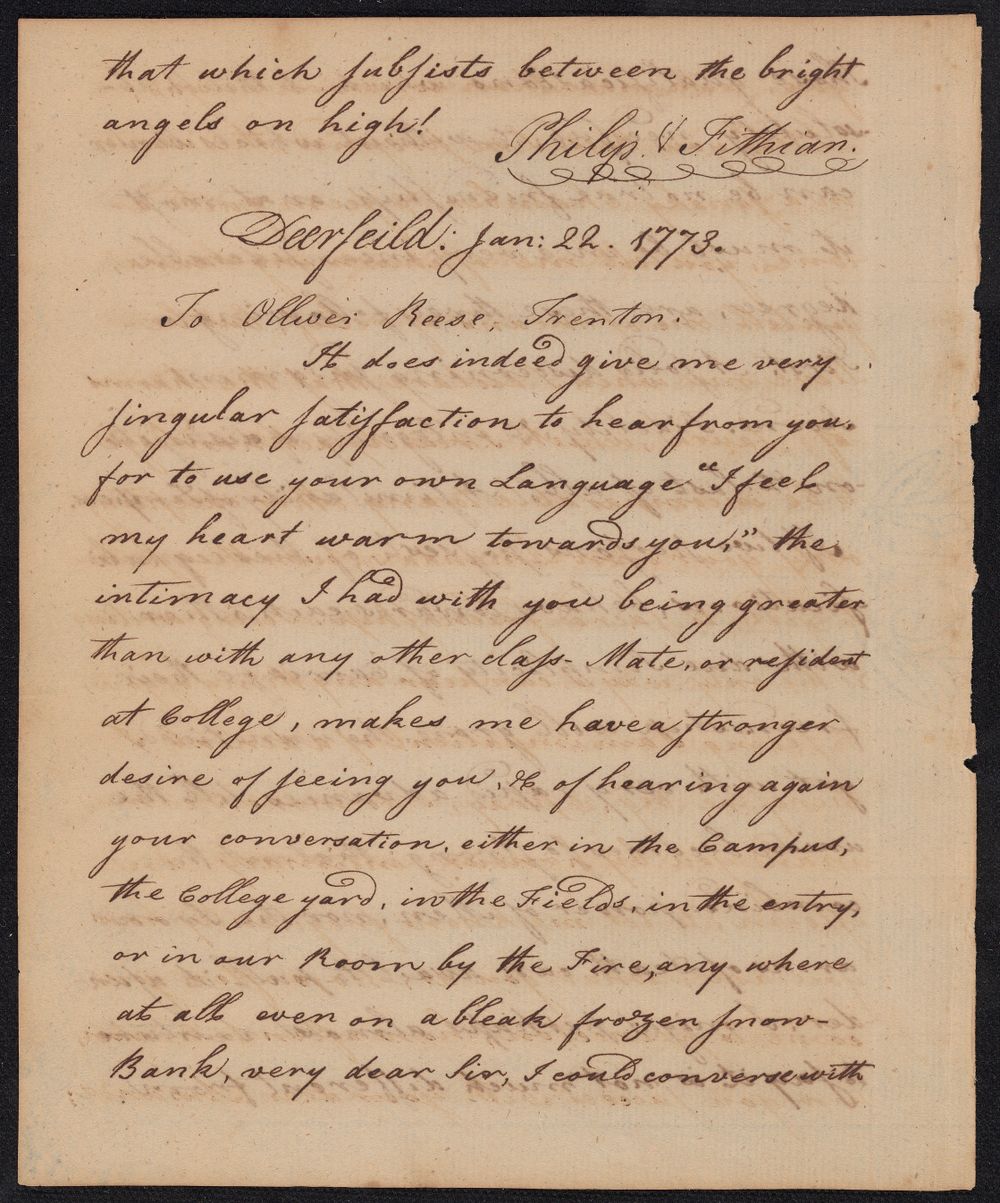 that which subsists between the bright
angels on high!
Philip V Fithian.
Deerfeild: Jan: 22. 1773.
To Olliver Reese, Trenton.
It does indeed give me very
singular satisfaction to hear from you.
for to use your own Language "I feel
my heart warm towards you," the
intimacy I had with you being greater
than with any other class-Mate, or resident
at College, makes me have a stronger
desire of seeing you, & of hearing again
your conversation, either in the Campus,
the College yard, in the Fields, in the entry,
or in our Room by the Fire, any where
at all even on a bleak frozen snow-
Bank, very dear Sir, I could converse with